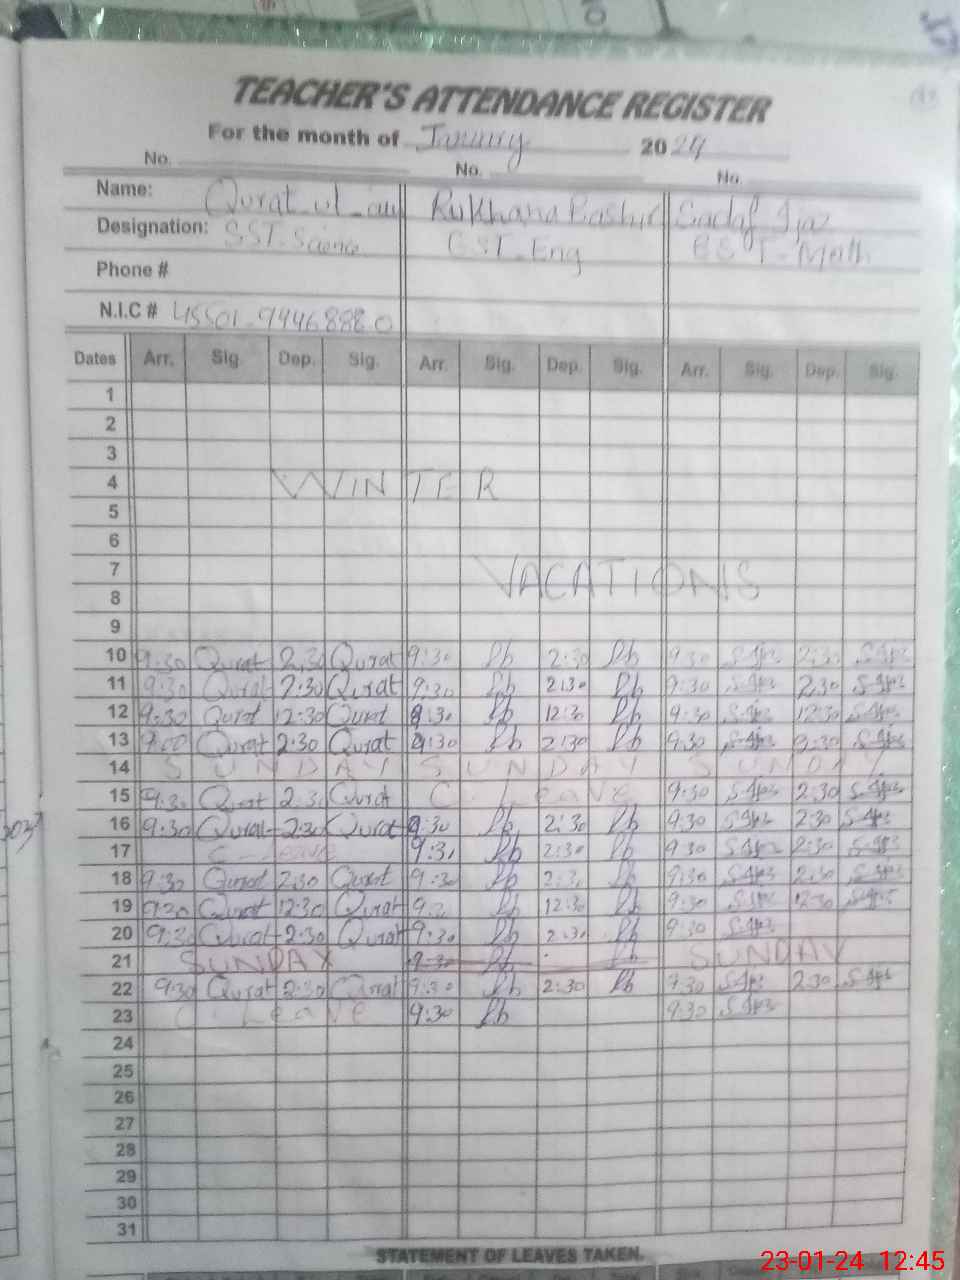 TEACHER'S ATTENDANCE REGISTER
For the month of January 2024
No. No. No.
Name: Qurat_ul_ain Rukhana Bashir Sadaf Ijaz
Designation: SST-Science EST_Eng EST-Math
Phone #
N.I.C # 45501-9446888-0
Dates Arr. Sig. Dep. Sig. Arr. Sig. Dep. Sig. Arr. Sig. Dep. Sig.
1
2
3
4 WINTER
5
6
7 VACATIONS
8
9
10 9:30 Qurat 2:30 Qurat 9:30 Rb 2:30 Rb 9:30 2:30
11 9:30 Qurat 2:30 Qurat 9:30 Rb 2:30 Rb 9:30 2:30
12 9:30 Qurat 12:30 Qurat 9:30 Rb 12:30 Rb 9:30 12:30
13 9:00 Qurat 2:30 Qurat 9:30 Rb 2:30 Rb 9:30 2:30
14 SUNDAY SUNDAY SUNDAY
15 9:30 Qurat 2:30 Qurat C. Leave 9:30 2:30
16 9:30 Qurat 2:30 Qurat 9:30 Rb 2:30 Rb 9:30 2:30
17 C-leave 9:30 Rb 2:30 Rb 9:30 2:30
18 9:30 Qurat 2:30 Qurat 9:30 Rb 2:30 Rb 9:30 2:30
19 9:30 Qurat 12:30 Qurat 9:30 Rb 12:30 Rb 9:30 12:30
20 9:30 Qurat 2:30 Qurat 9:30 Rb 2:30 Rb 9:30
21 SUNDAY 9:30 Rb Rb SUNDAY
22 9:30 Qurat 2:30 Qurat 9:30 Rb 2:30 Rb 9:30 2:30
23 C. Leave 9:30 Rb 9:30
24
25
26
27
28
29
30
31
STATEMENT OF LEAVES TAKEN.
23-01-24 12:45